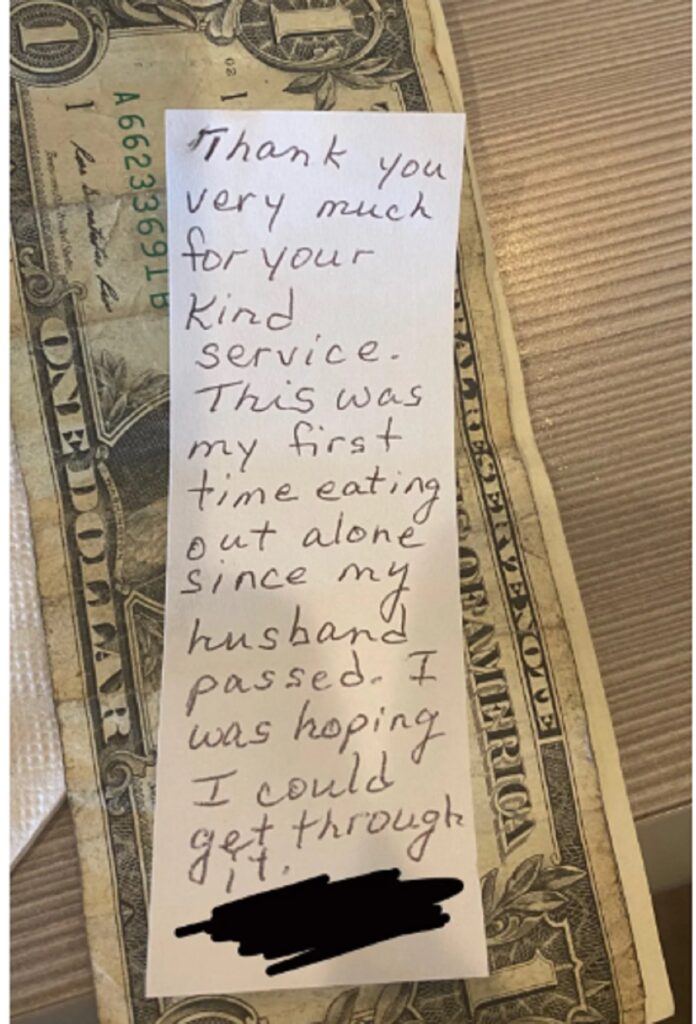 Thank you
very much
for your
kind
service.
This was
my first
time eating
out alone
since my
husband
passed. I
was hoping
I could
get through
it.
A66233691B
ONE DOLLAR
RAL RESERVE NOTE
S OF AMERICA
1
1